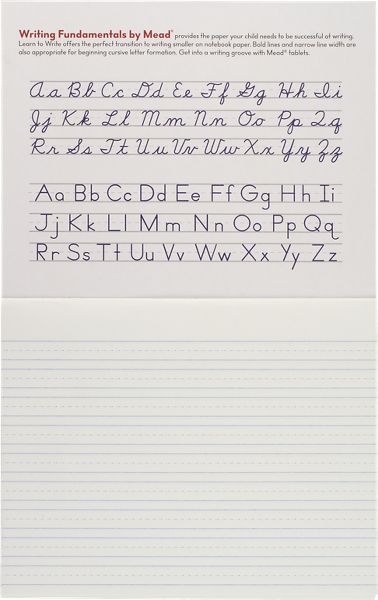 Writing Fundamentals by Mead® provides the paper your child needs to be successful of writing.
Learn to Write offers the perfect transition to writing smaller on notebook paper. Bold lines and narrow line width are
also appropriate for beginning cursive letter formation. Get into a writing groove with Mead® tablets.
Aa Bb Cc Dd Ee Ff Gg Hh Ii
Jj Kk Ll Mm Nn Oo Pp Qq
Rr Ss Tt Uu Vv Ww Xx Yy Zz
Aa Bb Cc Dd Ee Ff Gg Hh Ii
Jj Kk Ll Mm Nn Oo Pp Qq
Rr Ss Tt Uu Vv Ww Xx Yy Zz